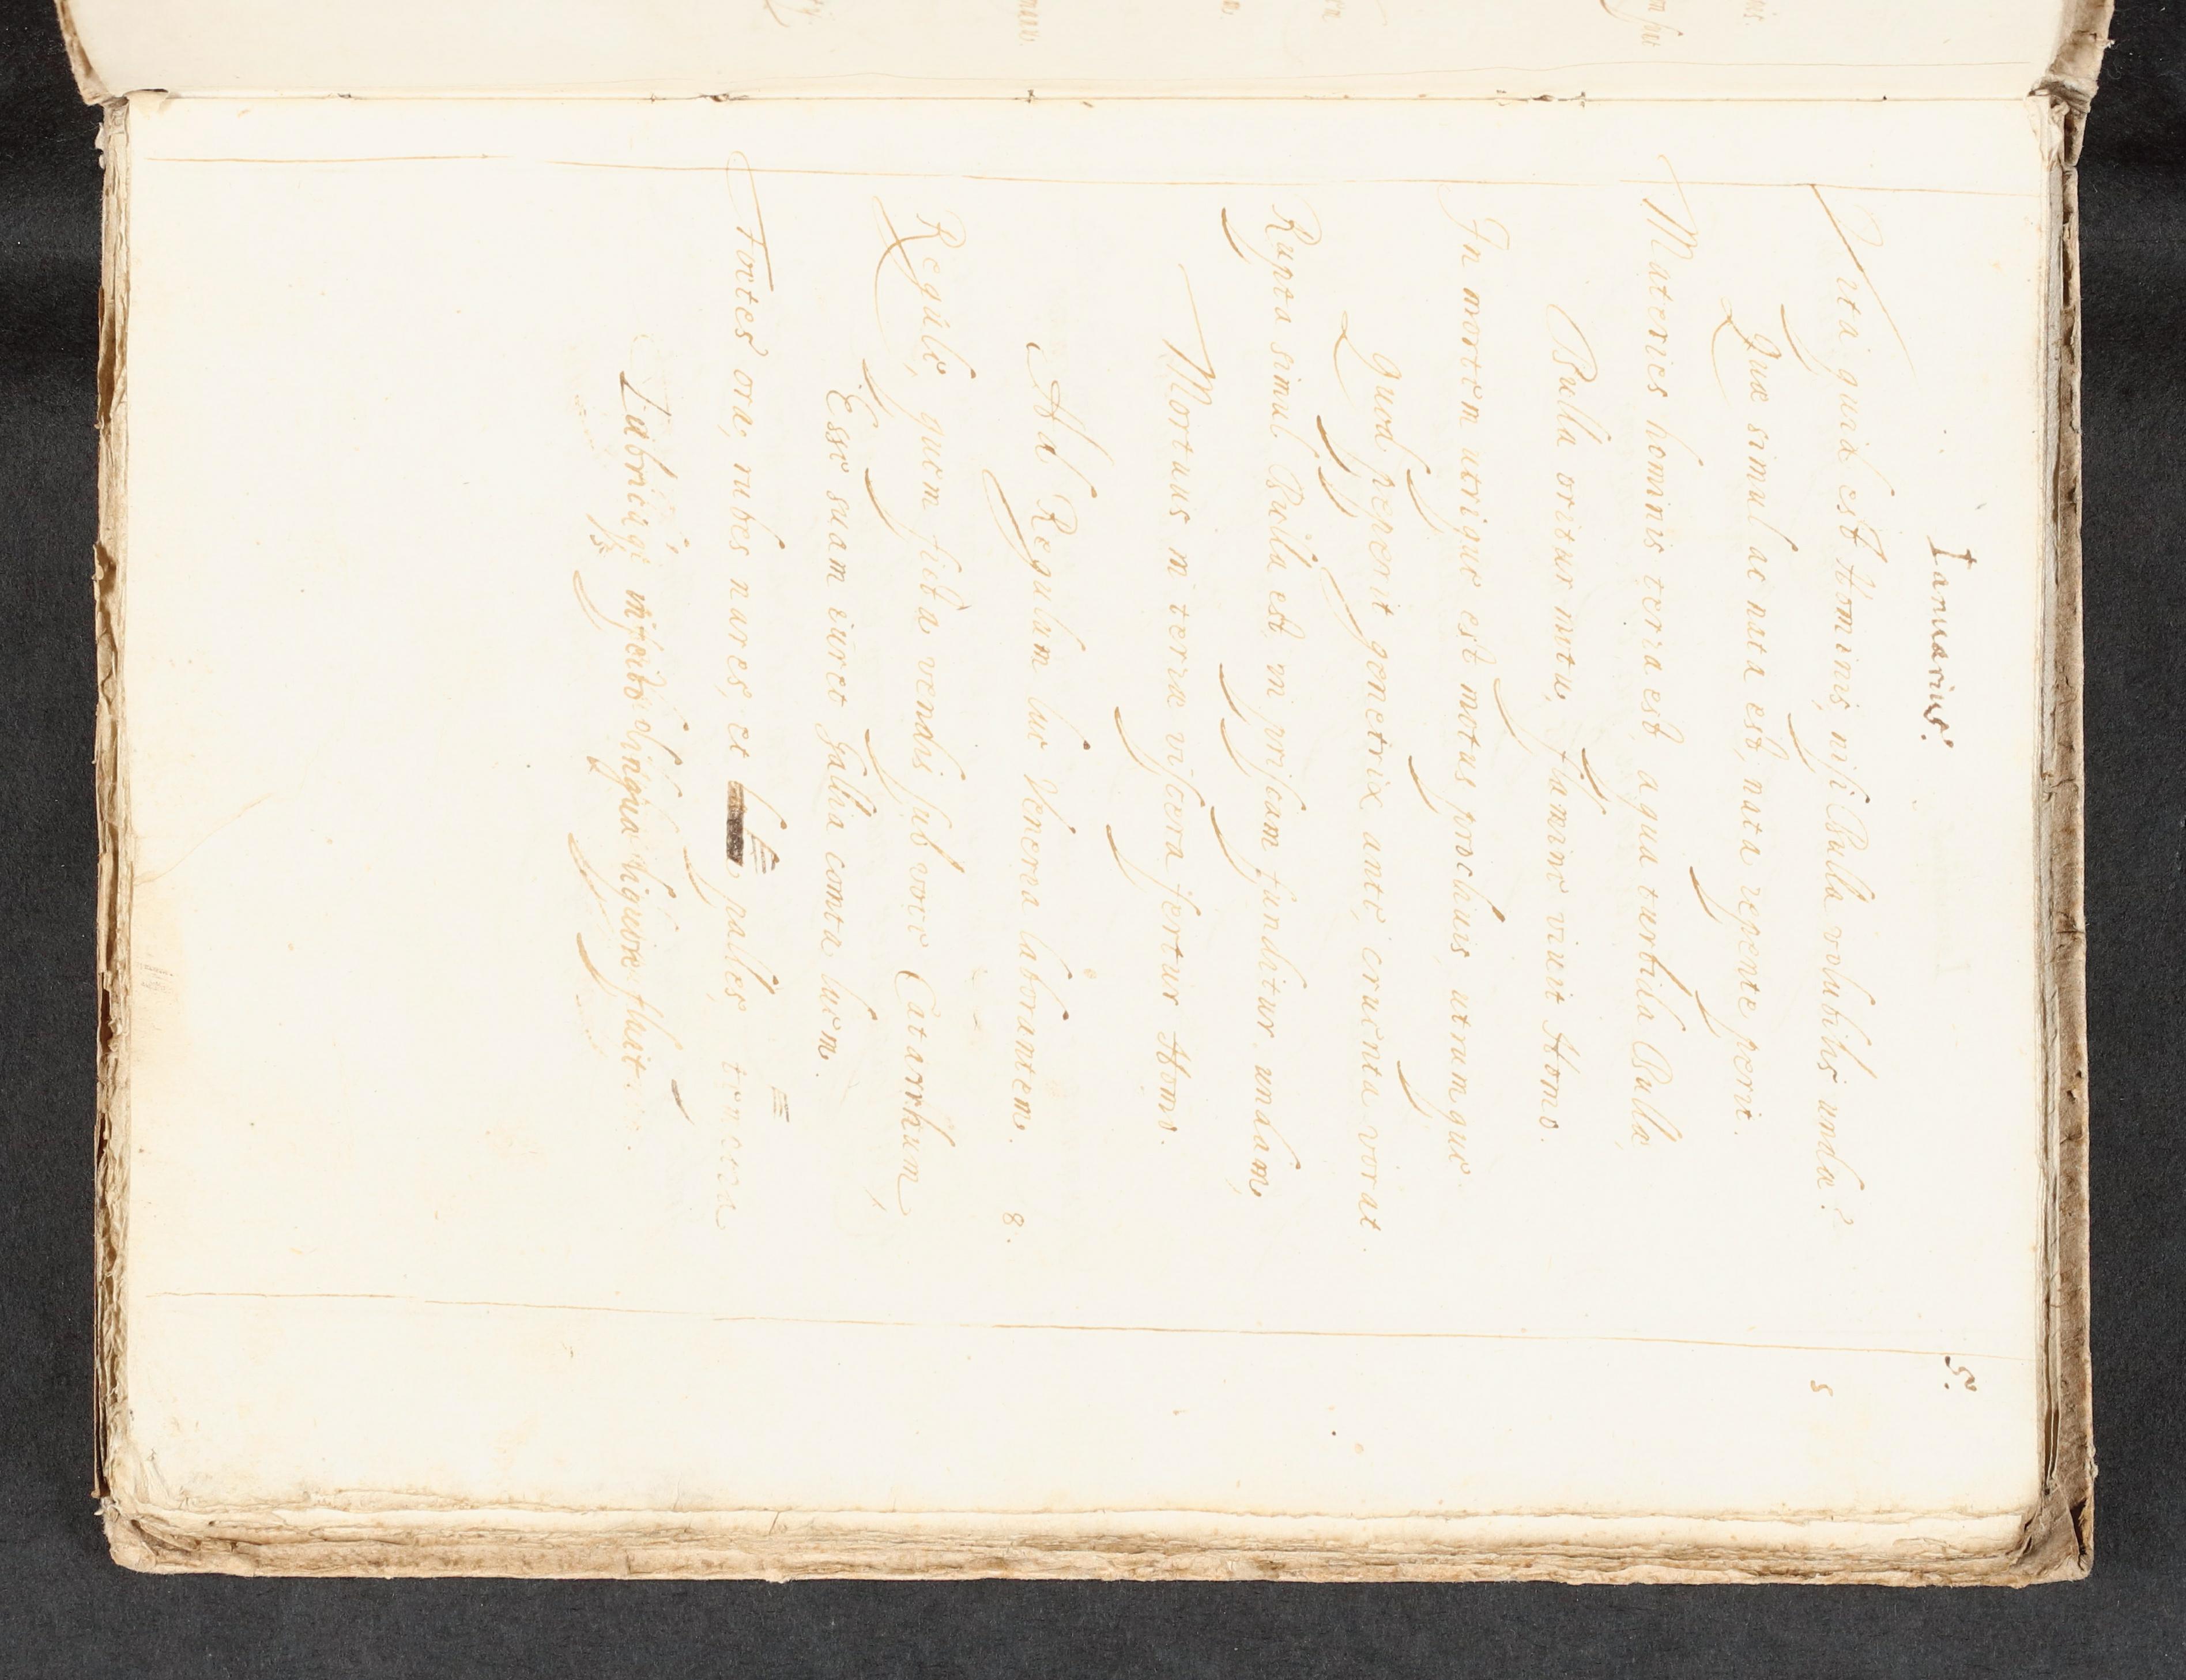 Ianuarius. 5.
5
Vita quid est Hominis, nisi Bulla volubilis undæ?
Quæ simul ac nata est, nata repente perit.
Materies hominis terra est, aqua turbida Bullæ,
Bulla oritur motu, flamine vivit Homo.
In mortem utrique est motus proclivis, utrumque
Quod peperit genetrix ante, cruenta vorat.
Rupta simul Bulla est, in priscam funditur undam,
Mortuus in terræ viscera fertur Homo.
Ad Regulum lue Venerea laborantem. 8.
Regule, quem ficta vendis sub voce Catarrhum,
Esse suam iuret Gallia comta luem.
Fortes ora, rubes nares, et palles,
Lubricaq; infecto lingua liquore fluit.